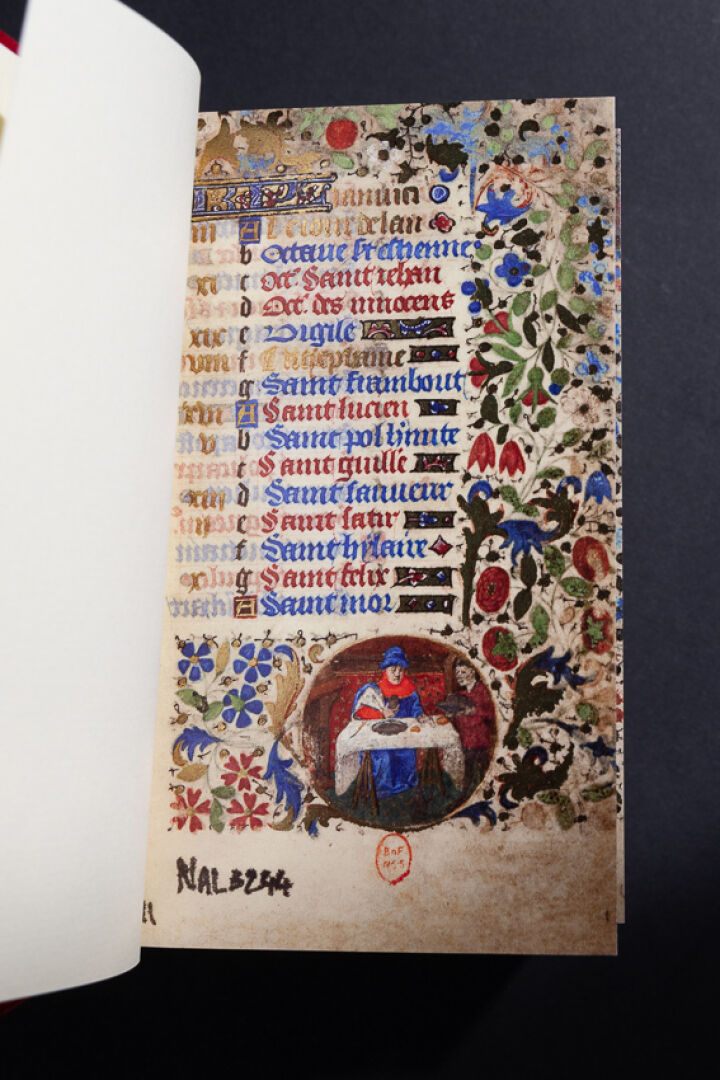 Januier
iii A Le iour de lan
b Octaue st estienne
xi c Oct. Saint iehan
d Oct. des innocens
xix e Vigile
viii f Tiffephaine
g Saint frambout
xvi A Saint lucien
v b Saint pol h̓mite
c Saint guille
xiii d Saint sauueur
ii e Saint satir
f Saint hylaire
x g Saint felix
A Saint mor
BnF
MSS
NAL 3244